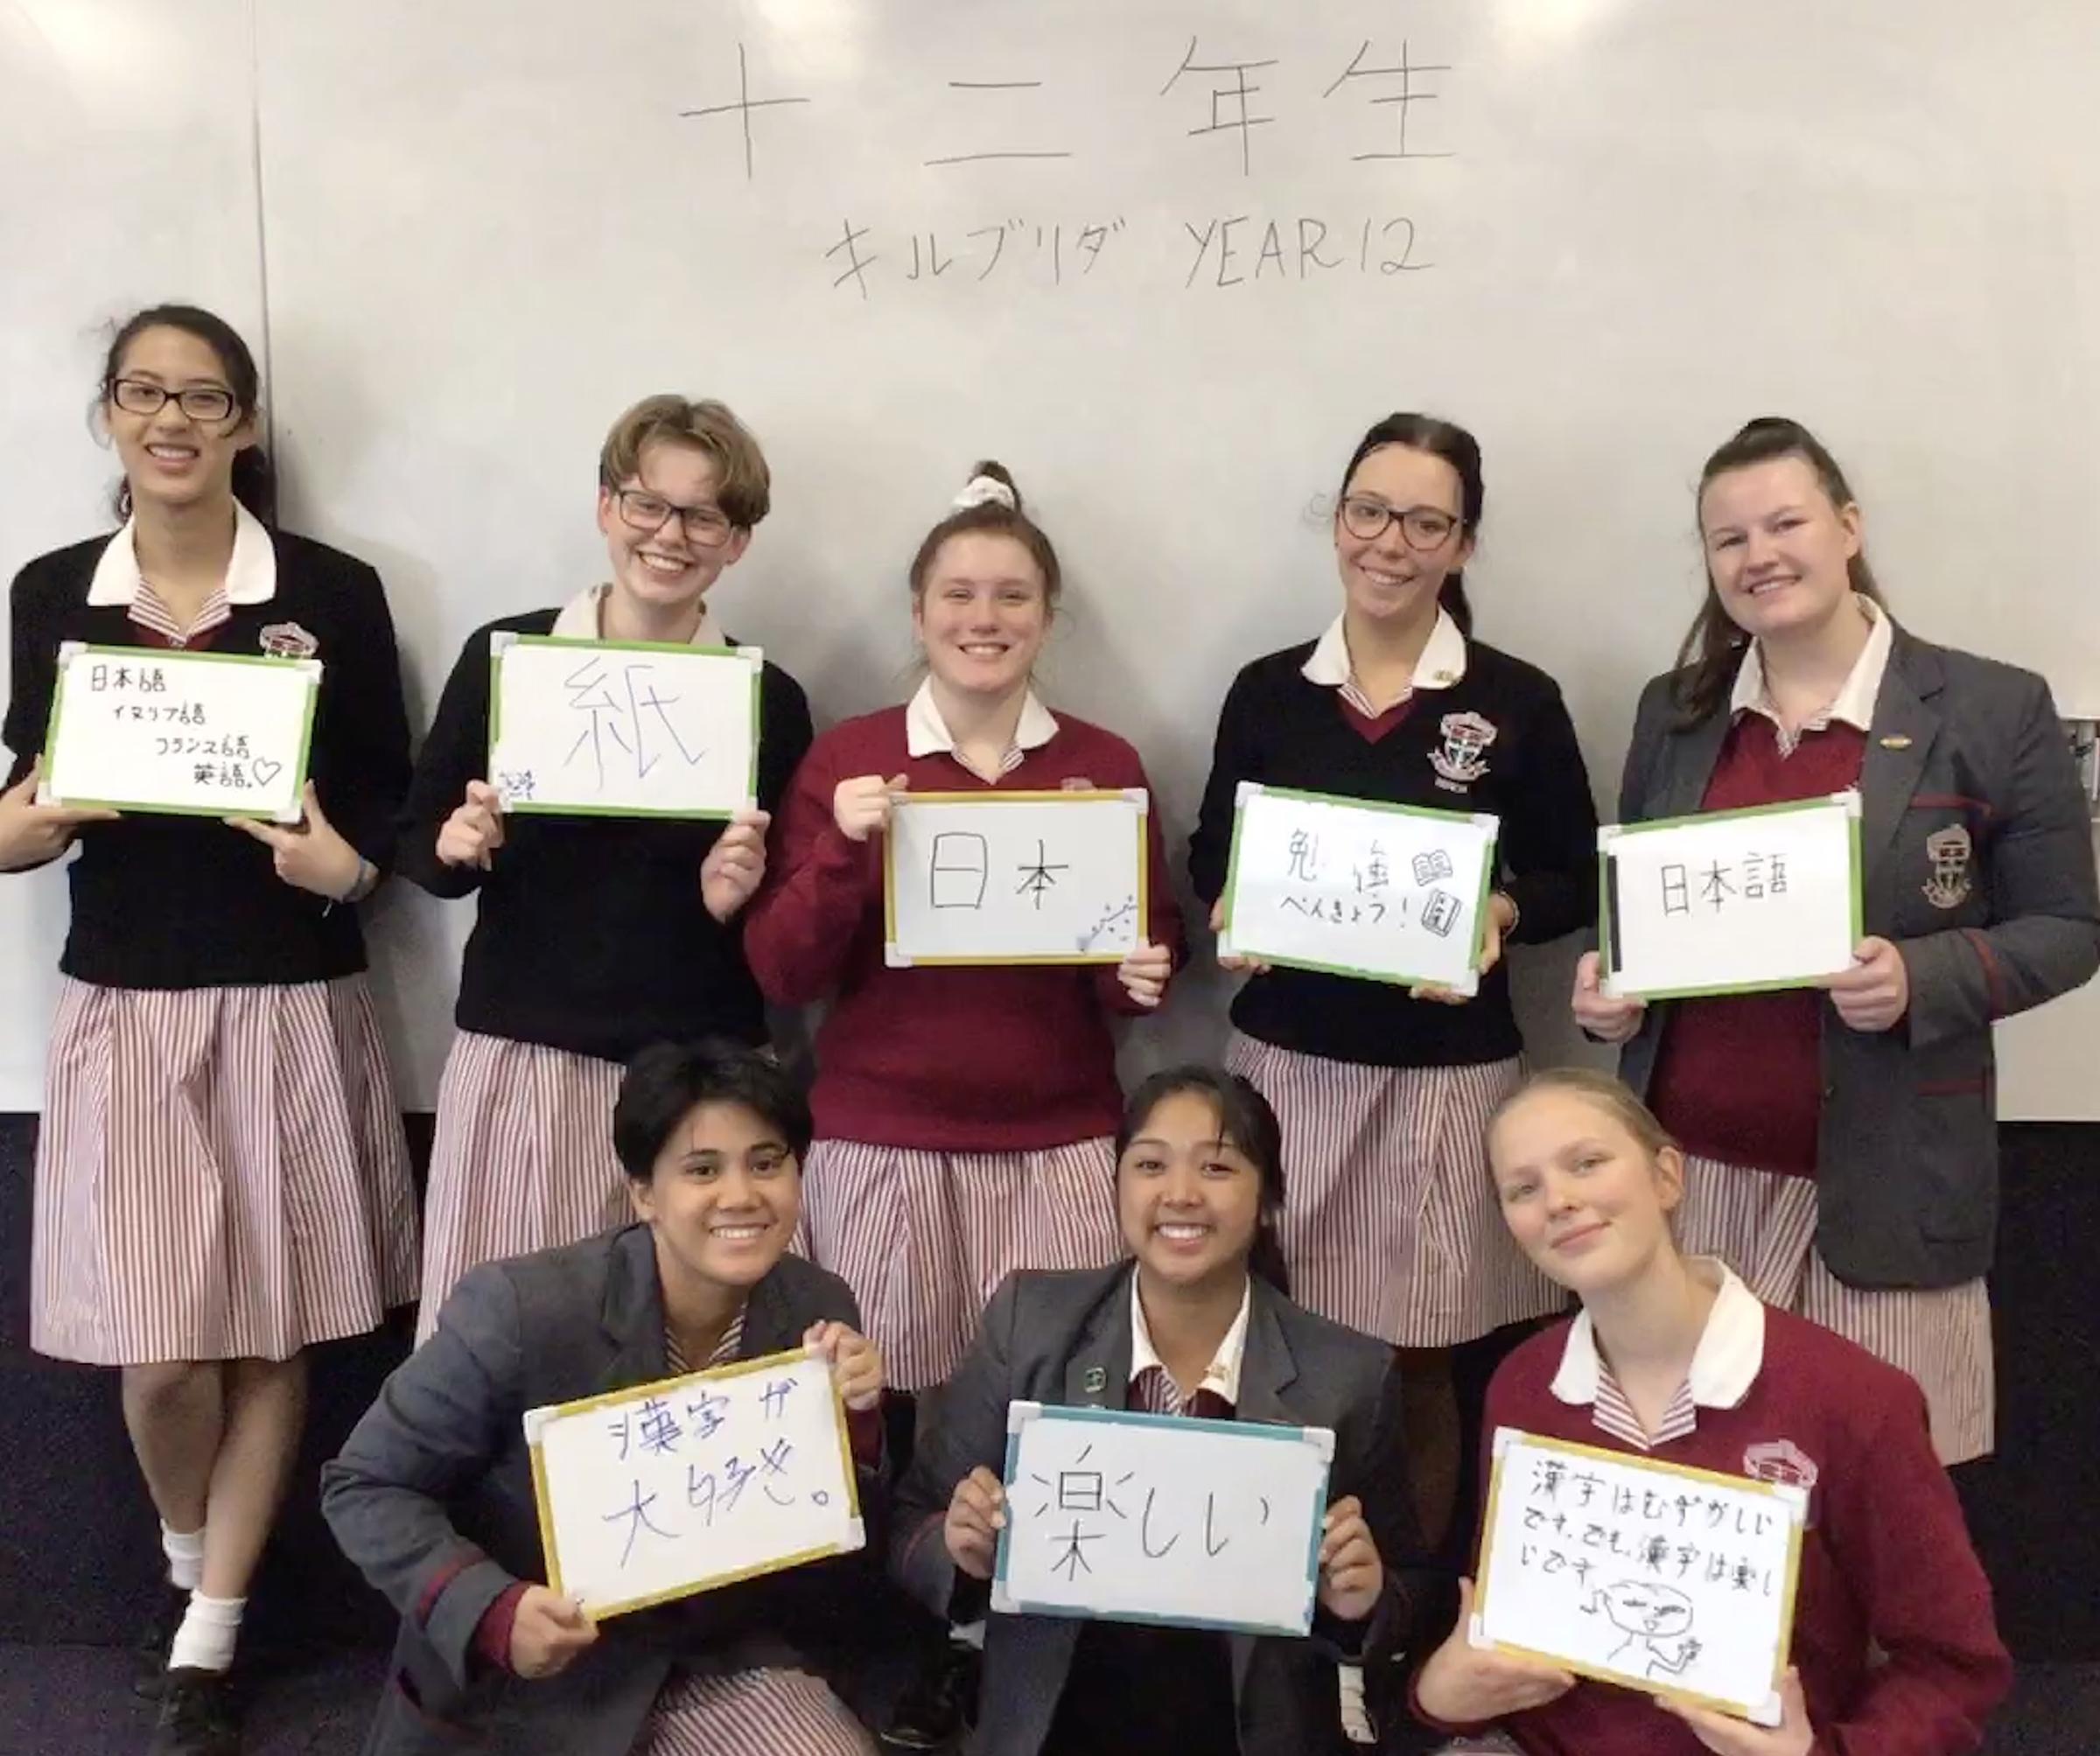 十二年生
キルブリダ YEAR 12
日本語
イタリア語
フランス語
英語。♡
紙
日本
勉強
べんきょう！
日本語
漢字が
大好き。
楽しい
漢字はむずかしい
です。でも、漢字は楽し
いです